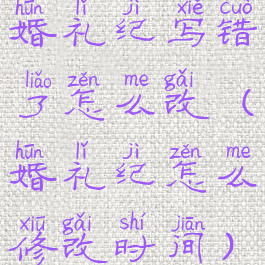 hūn lǐ jì xiě cuò
婚礼纪写错
liǎo zěn me gǎi
了怎么改（
hūn lǐ jì zěn me
婚礼纪怎么
xiū gǎi shí jiān
修改时间）